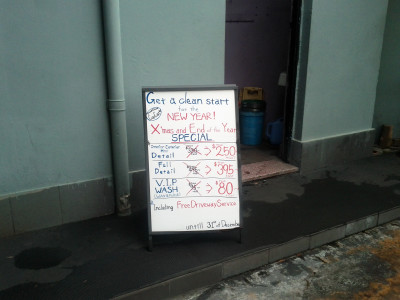 Get a clean start
for the
NEW YEAR!
X'mas and End of the Year
SPECIAL
Interior Exterior
Mini
Detail → $250
Full
Detail → $395
V.I.P
WASH → $80
*Including Free Driveway Service
untill 31st of December